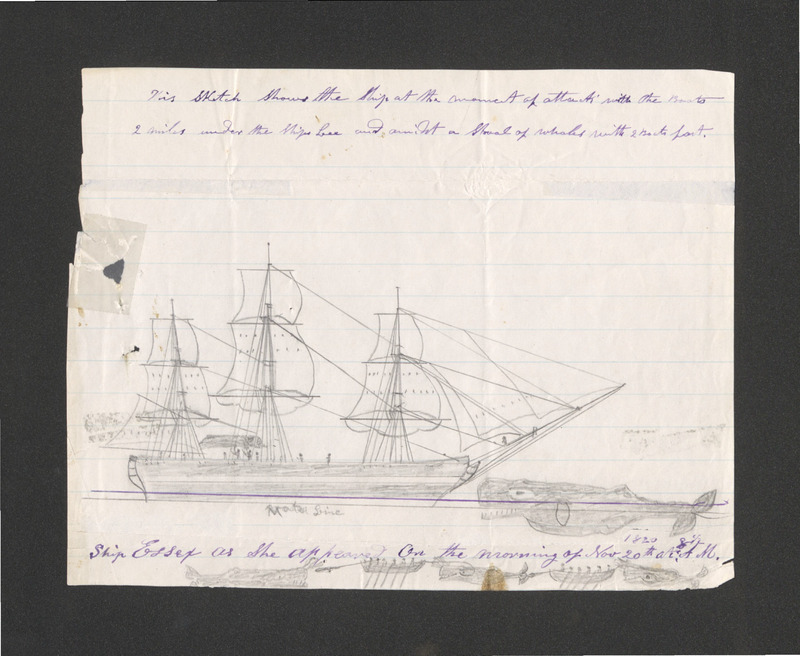 This Sketch Shows the Ship at the moment of attack with the Boats
2 miles under the Ships Lee and amidst a Shoal of whales with 2 Boats fast.
Water Line
1820
Ship Essex as She appeared On the morning of Nov 20th at 8½ A.M.